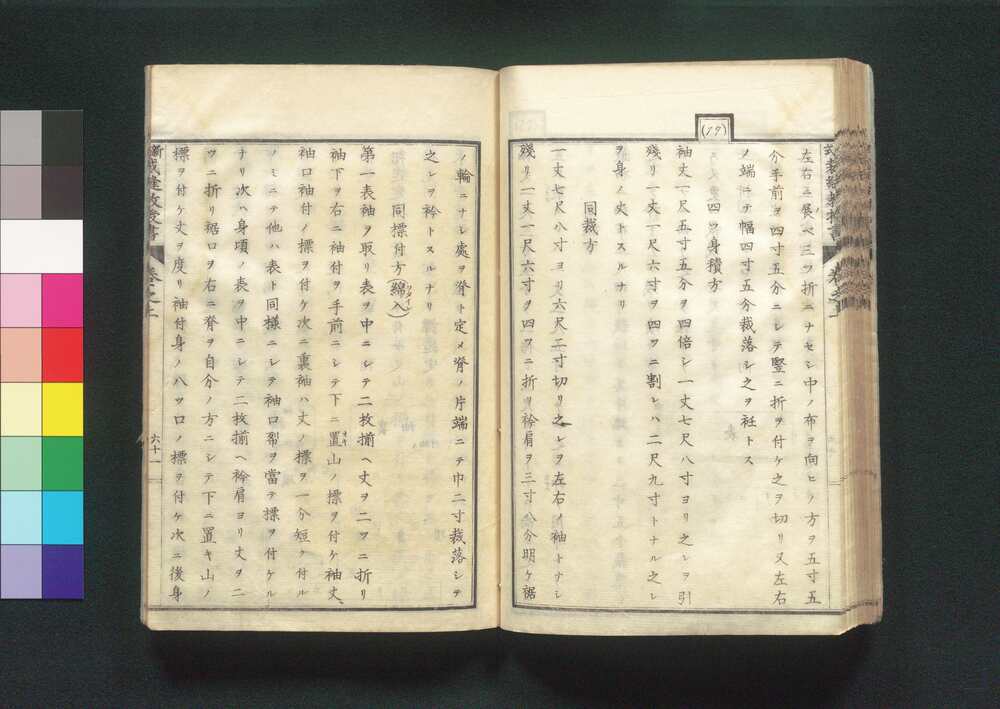 (79)
左右ニ展ベ三ツ折ニナセシ中ノ布ヲ向ヒノ方ヲ五寸五
介手前ヲ四寸五分ニシテ竪ニ折ヲ付ケ之ヲ切リ又左右
ノ端ニテ幅四寸五分裁落シ之ヲ衽トス
四ツ身積方
袖丈一尺五寸五分ヲ四倍シ一丈七尺八寸ヨリ之レヲ引
殘リ一丈一尺六寸ヲ四ツニ割レハ二尺九寸トナル之レ
ヲ身ノ丈トスルナリ
同裁方
一丈七尺八寸ヨリ六尺二寸切リ之レヲ左右ノ袖トナシ
殘リ一丈一尺六寸ヲ四ツニ折リ衿肩ヲ三寸八分明ケ裾
ノ輪ニナシ處ヲ脊ト定メ脊ノ片端ニテ巾二寸裁落シテ
之レヲ衿トスルナリ
同標付方(綿入)
第一表袖ヲ取リ表ヲ中ニシテ二枚揃ヘ丈ヲ二ツニ折リ
袖下ヲ右ニ袖付ヲ手前ニシテ下ニ置山ノ標ヲ付ケ袖丈、
袖口袖付ノ標ヲ付ケ次ニ裏袖ハ丈ノ標ヲ一分短ク付ル
ノミニテ他ハ表ト同様ニシテ袖口裂ヲ當テ標ヲ付ケル
ナリ次ハ身頃ノ表ヲ中ニシテ二枚揃ヘ衿肩ヨリ丈ヲ二
ツニ折リ裾口ヲ右ニ脊ヲ自分ノ方ニシテ下ニ置キ山ノ
標ヲ付ケ丈ヲ度リ袖付身ノ八ツ口ノ標ヲ付ケ次ニ後身
裁縫教授書
卷之上
六十一